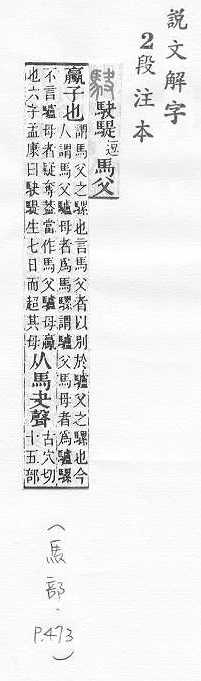 說文解字
2段注本
駃 駃騠逗馬父
驘子也謂馬父之騾也言馬父者以別於驢父之騾也今
人謂馬父驢母者爲馬騾謂驢父馬母者爲驢騾
不言驢母者疑奪葢當作馬父驢母驘
也六字孟康曰駃騠生七日而超其母从馬夬聲古穴切
十五部
(馬部.P.473)